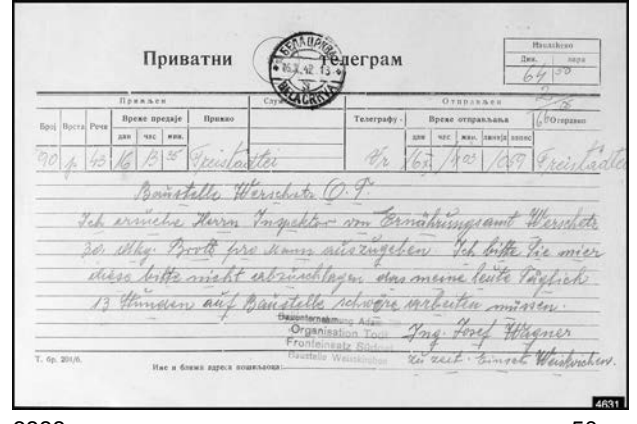 Приватни телеграм
БЕЛА ЦРКВА
16.X.42 13
BELACRKVA
Наплаћено
Дин. пара
64 50
Примљен Отправљен
Број Врста Речи Време предаје Примио Телеграфу - Време отправљања Отправио
дан час мин. дан час мин.
90 p 43 16 13 35 Freistädtei Vr 16 Freistädtei
Baustelle Werschetz O. T.
Ich ersuche Herrn Inspektor von Ernährungsamt Werschetz
30. dkg. Brott pro Mann auszugeben Ich bitte Sie mier
diese bitte nicht abzuschlagen das meine leute Täglich
13 Stunden auf Baustelle schwere arbeiten müssen.
Bauunternehmung
Organisation Todt Ing. Josef Wagner
Fronteinsatz Südost
Baustelle Weiskirchen zu zeit. Einsatz Weiskirchen.
Т. бр. 201/6.
Име и ближа адреса пошиљаоца:
4631